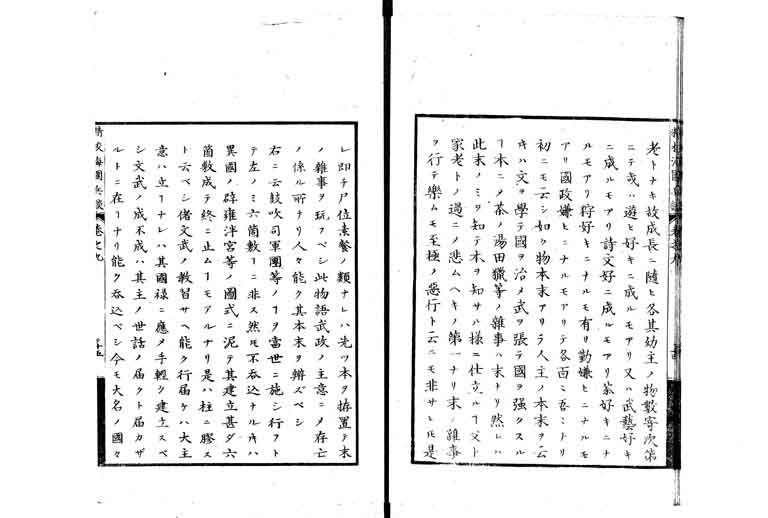 老トナキ故成長ニ隨ヒ各其幼主ノ物數寄次第
ニテ或ハ遊ヒ好キニ成ルモアリ又ハ武藝好キ
ニ成ルモアリ詩文好ニ成ルモアリ茶好キニナ
ルモアリ狩好キニナルモ有リ勤嫌ヒニナルモ
アリ國政嫌ヒニナルモアリテ各百ミ吾ミトナリ
初ニモ云シ如ク物本末アリラ人主ノ本末ヲ云
キハ文ヲ學テ國ヲ治メ武ヲ張テ國ヲ强クスル
ー本ニメ茶ノ湯田獵等ノ雜事ハ末ナリ然レハ
此末ノミヲ知テ本ヲ知サル樣ニ仕立ルー父ト
家老トノ過ニノ悲ムヘキノ第一ナリ末ノ雜事
ヲ行テ樂ムモ至極ノ惡行ト云ニモ非サレ𪜈是
レ即チ尸位素餐ノ類ナレハ先ツ本ヲ拵置テ末
ノ雜事ヲ玩フヘシ此物語武政ノ主意ニメ存亡
ノ係ル所ナリ人々能ク其本末ヲ辨ズベシ
右ニ云鼓吹司軍團等ノーヲ當世ニ施シ行フト
テ左ノミ六箇數ーニ非ス然𪜈不呑込ナル𪜈ハ
異國ノ辟雍泮宮等ノ圖式ニ泥テ其建立甚ダ六
箇敷成テ終ニ止ムーモアルナリ是ハ柱ニ膠ス
ト云ベシ偖文武ノ教習サヘ能ク行届ケハ大主
意ハ立ーナレハ其國祿ニ應メ手輕ク建立スベ
シ文武ノ成不成ハ其主ノ世話ノ届クト届カザ
ルトニ在ーナリ能ク呑込ベシ今モ大名ノ國々
精校海國兵談
卷之九